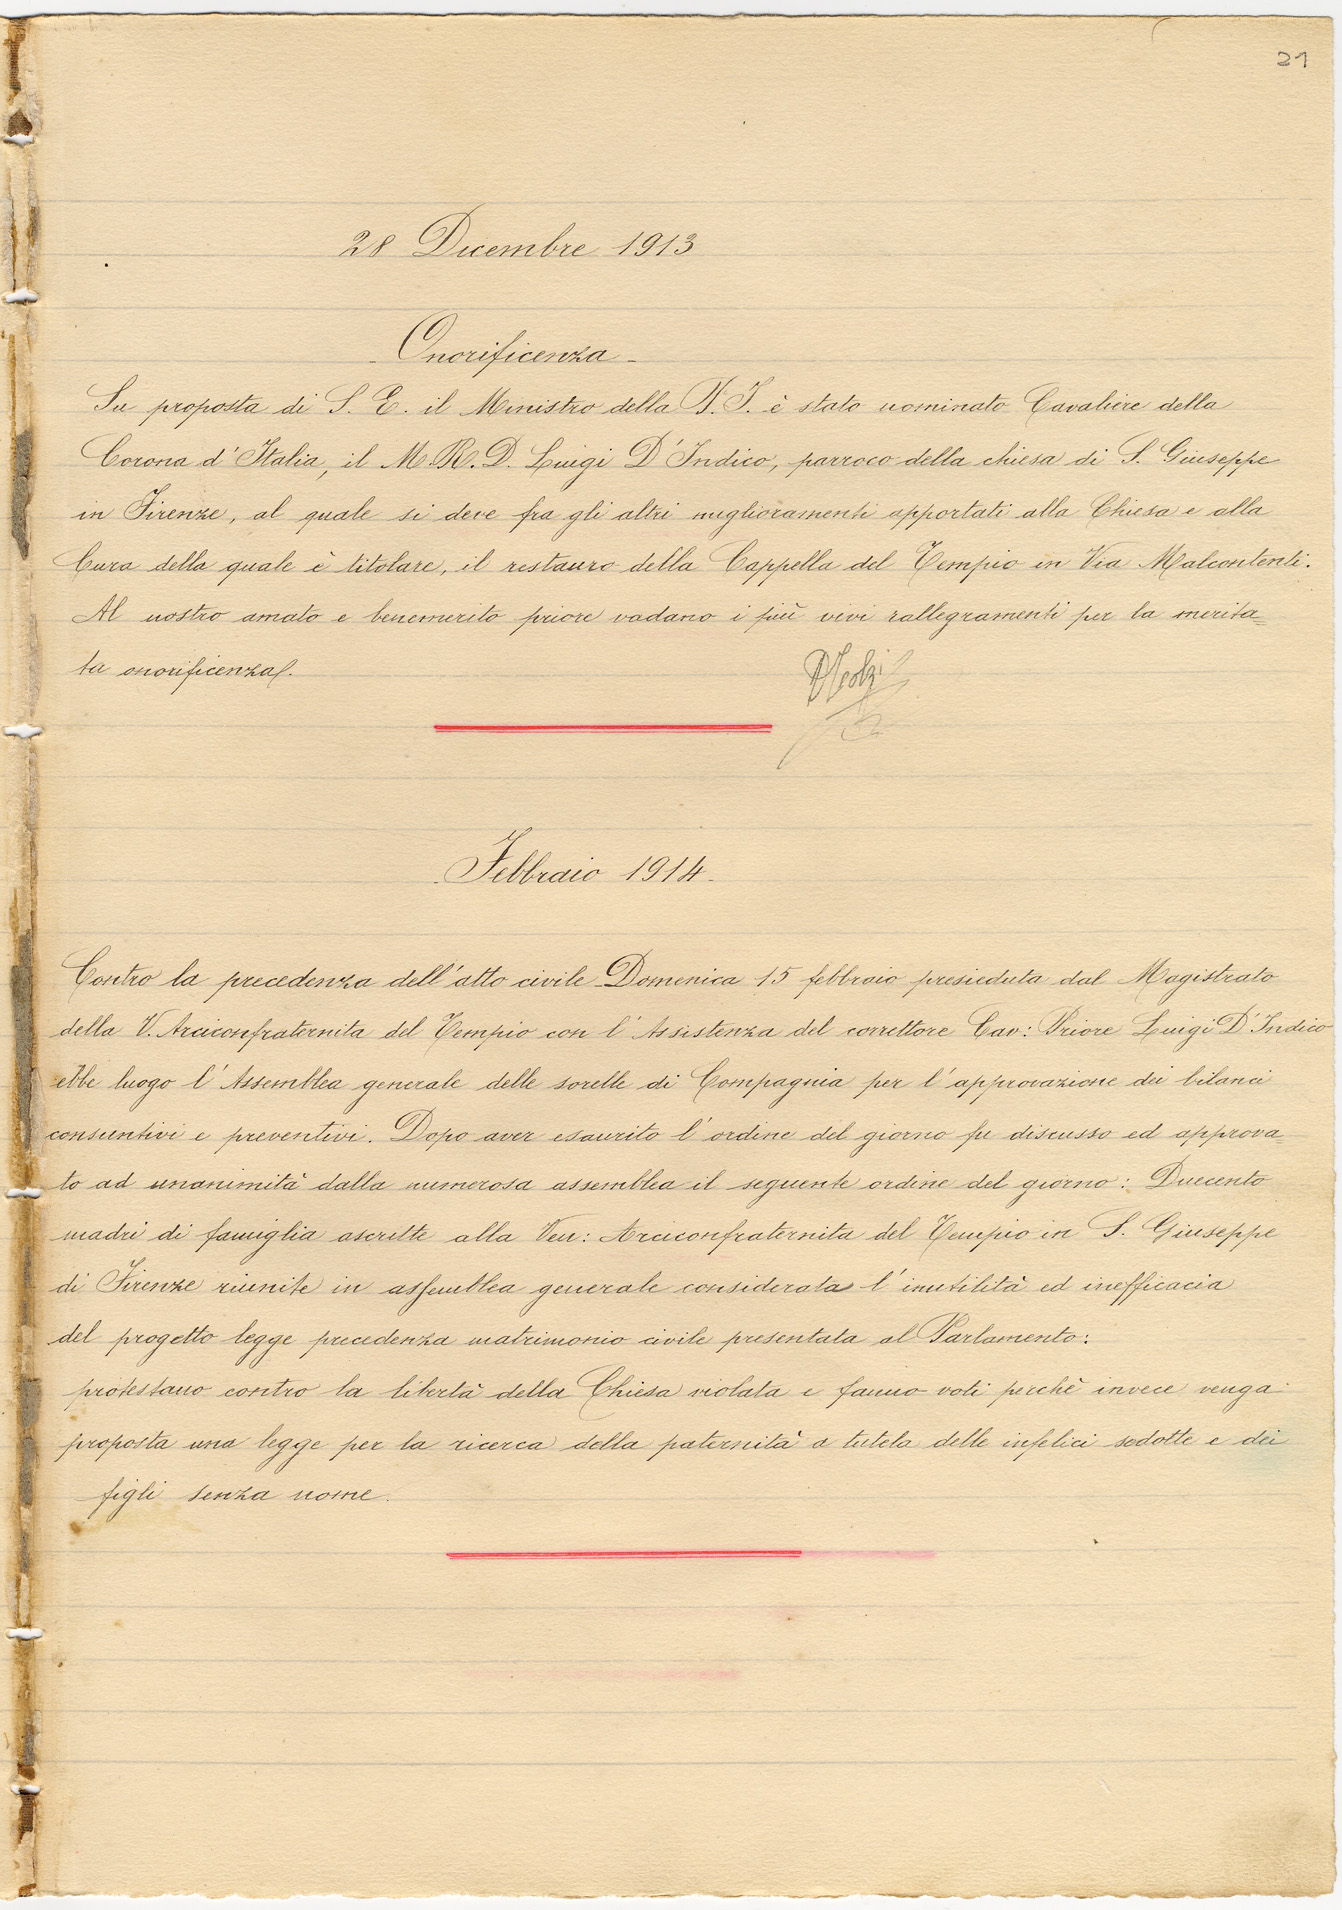 21
28 Dicembre 1913
- Onorificenza -
Su proposta di S. E. il Ministro della P. I. è stato nominato Cavaliere della
Corona d'Italia, il M. R. D. Luigi D'Indico, parroco della chiesa di S. Giuseppe
in Firenze, al quale si deve fra gli altri miglioramenti apportati alla Chiesa e alla
Cura della quale è titolare, il restauro della Cappella del Tempio in Via Malcontenti.
Al nostro amato e benemerito priore vadano i più vivi rallegramenti per la merita=
ta onorificenza.
- Febbraio 1914 -
Contro la precedenza dell'atto civile Domenica 15 febbraio presieduta dal Magistrato
della V. Arciconfraternita del Tempio con l'Assistenza del correttore Cav: Priore Luigi D'Indico
ebbe luogo l'Assemblea generale delle sorelle di Compagnia per l'approvazione dei bilanci
consuntivi e preventivi. Dopo aver esaurito l'ordine del giorno fu discusso ed approva=
to ad unanimità dalla numerosa assemblea il seguente ordine del giorno: Duecento
madri di famiglia ascritte alla Ven: Arciconfraternita del Tempio in S. Giuseppe
di Firenze riunite in assemblea generale considerata l'inutilità ed inefficacia
del progetto legge precedenza matrimonio civile presentata al Parlamento:
protestano contro la libertà della Chiesa violata e fanno voti perchè invece venga
proposta una legge per la ricerca della paternità a tutela delle infelici sedotte e dei
figli senza nome.